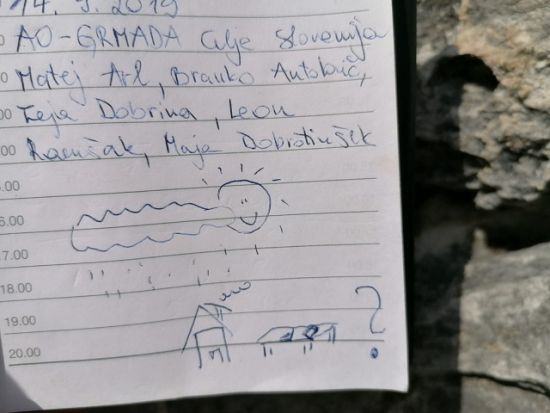 14. 9. 2019
00 AO-GRMADA Celje Slovenija
00 Matej Arl, Branko Antolovič,
00 Teja Dobrina, Leon
00 Ramšak, Maja Dobrotinšek
5.00
6.00
17.00
18.00
19.00
20.00 ?